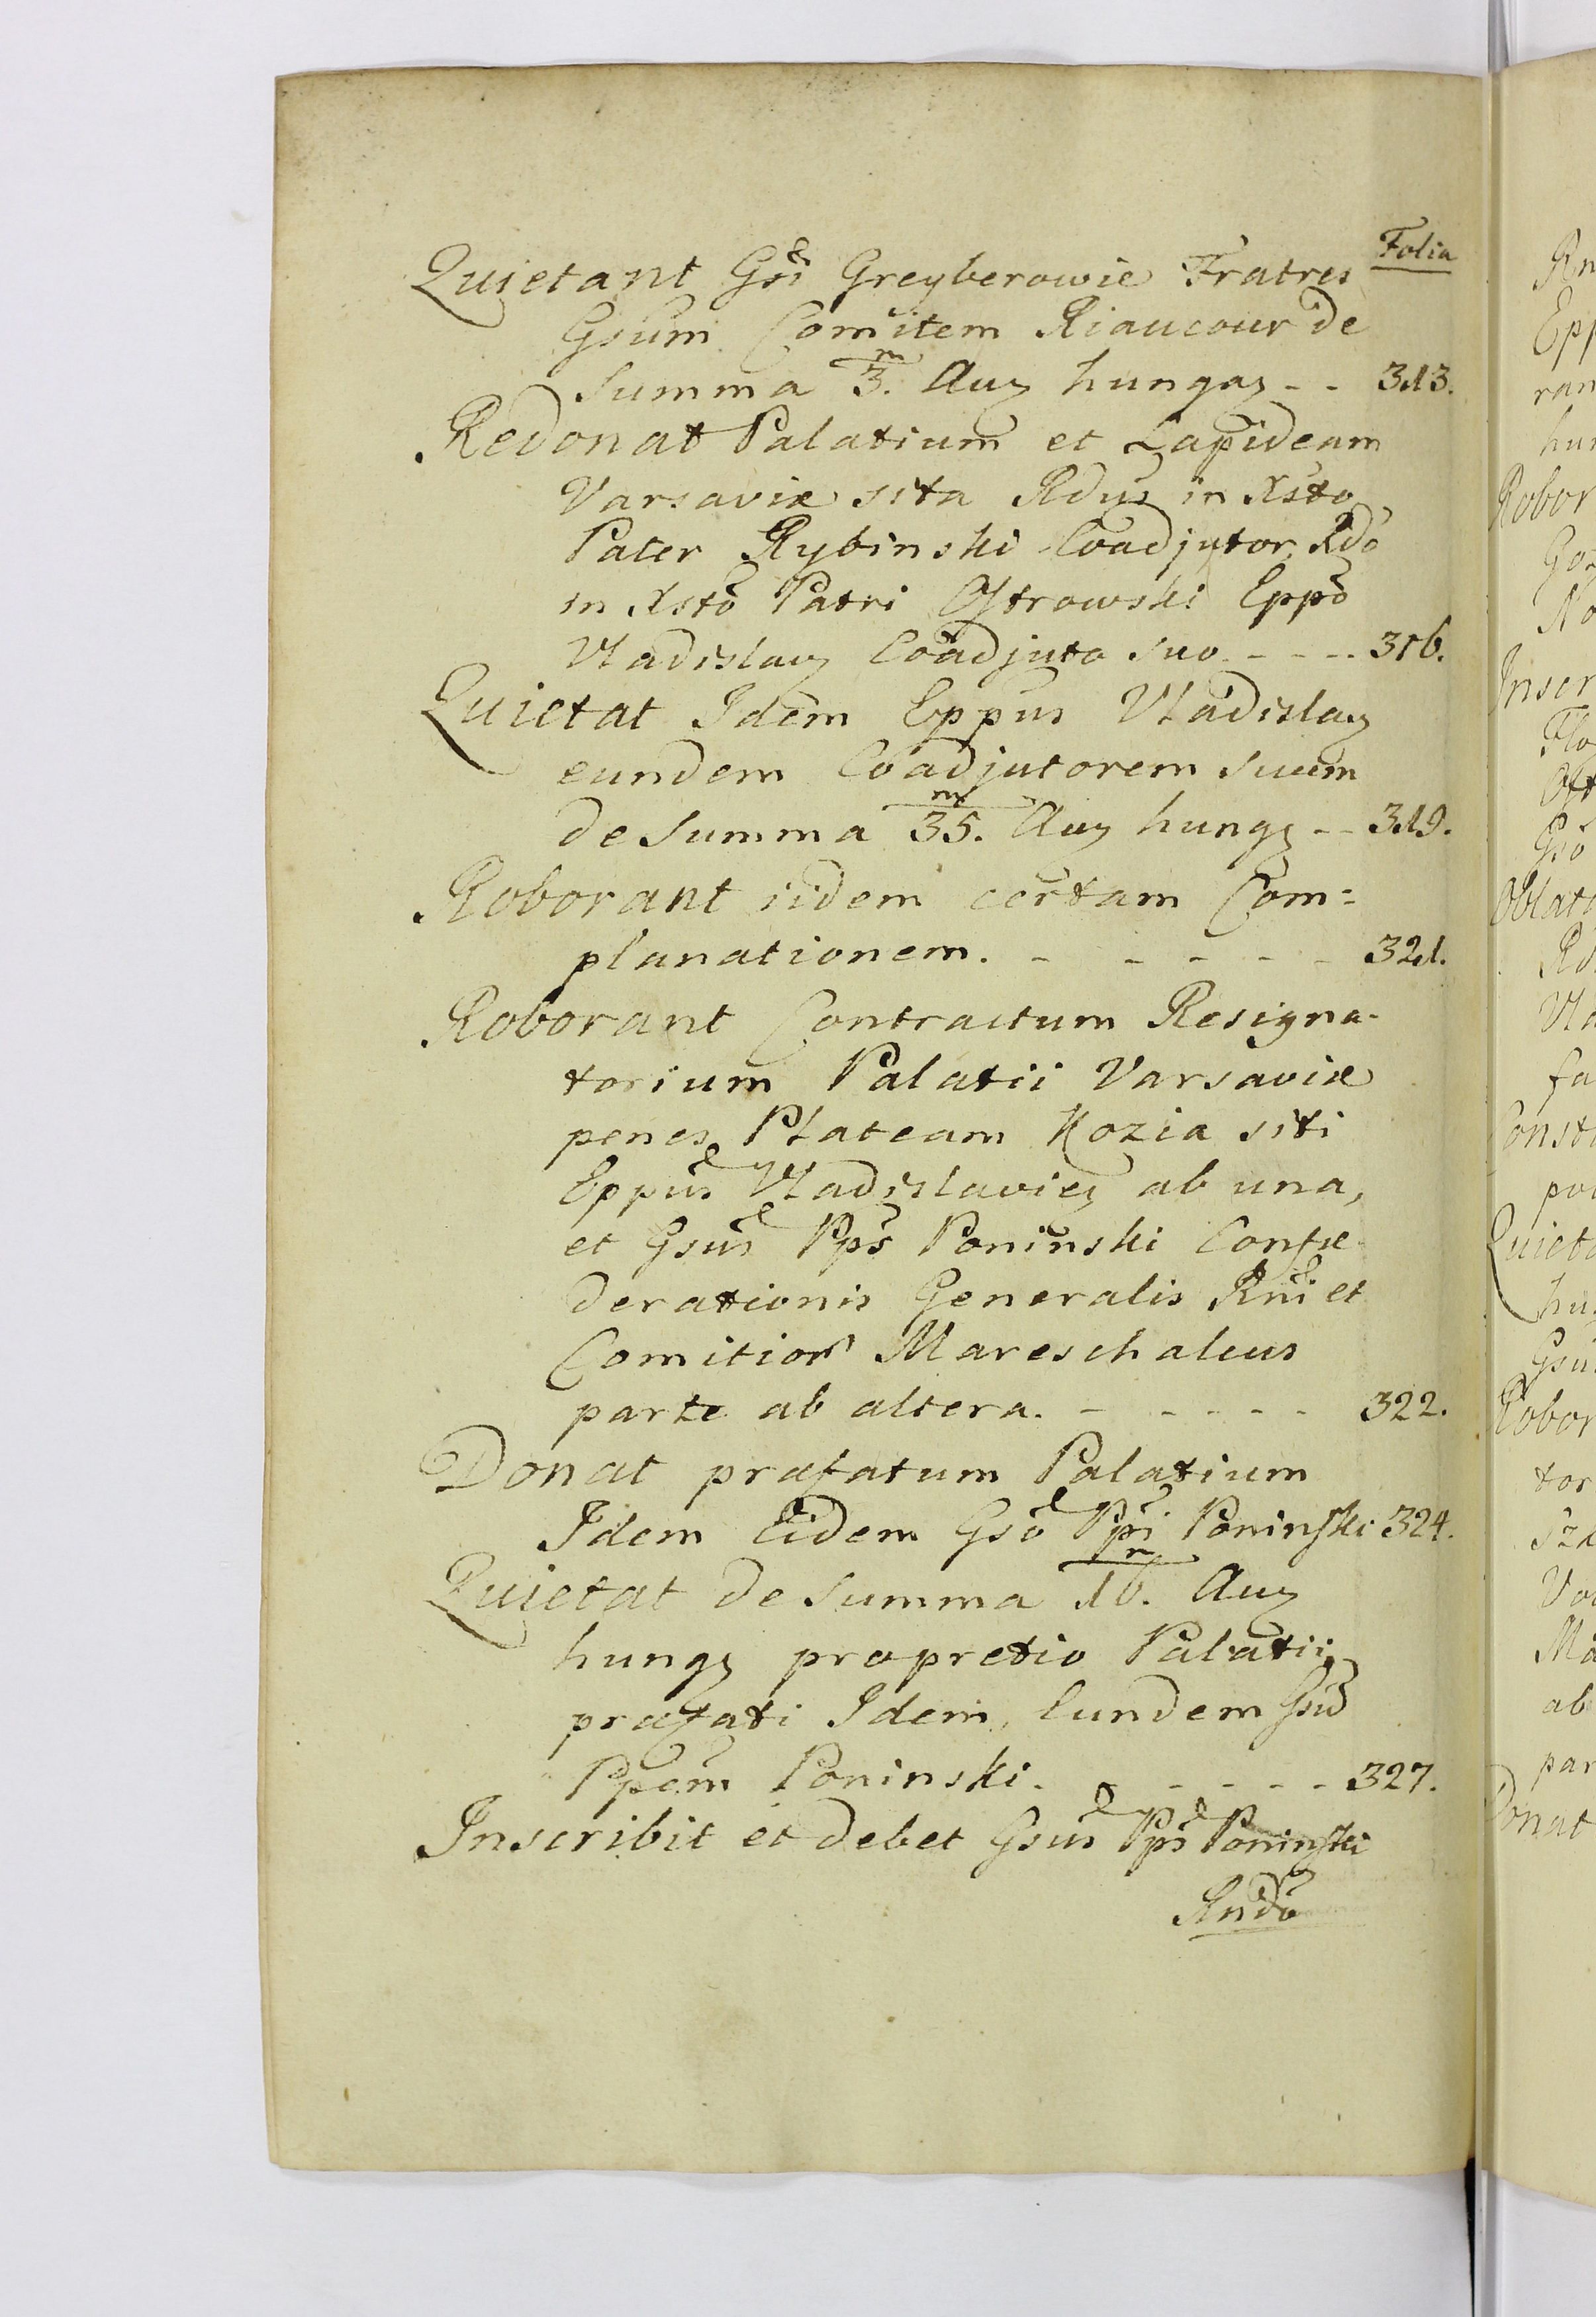 Folia
Quietant Gsi Greyberowie Fratres
Gsum Comitem Riaucour de
Summa 3.m Auz hungaz - - 313.
Redonat Palatium et Lapideam
Varsaviæ sita Rdus in Xsto
Pater Rybinski Coadjutor Rdo
in Xsto Patri Ostrowski Eppo
Vladislavz Coadjuto suo. - - - . 316.
Quietat Idem Eppus Vladislavz
eundem Coadjutorem suum
de Summa 35.m Auz hungz - - 319.
Roborant iidem certam Com=
planationem. - - - - - 321.
Roborant Contractum Resigna-
torium Palatii Varsaviæ
penes Plateam Kozia siti
Eppus Vladislavien ab una,
et Gsus Pps Poninski Confæ-
derationis Generalis Rni et
Comitior Mareschalcus
parte ab altera. - - - - - 322.
Donat præfatum Palatium
Idem Eidem Gso Ppi Poninski 324.
Quietat de Summa 16.m Auz
hungz propretio Palatii
præfati Idem, Eundem Gsu
Ppem Poninski. - - - - - 327.
Inscribit et debet Gsus Pps Poninski
Rndo
Epp
ran
Robor
No
Inser
Gso
Oblat
fa
Const
Quiet
Gsu
Robor
tor
ab
par
Donat